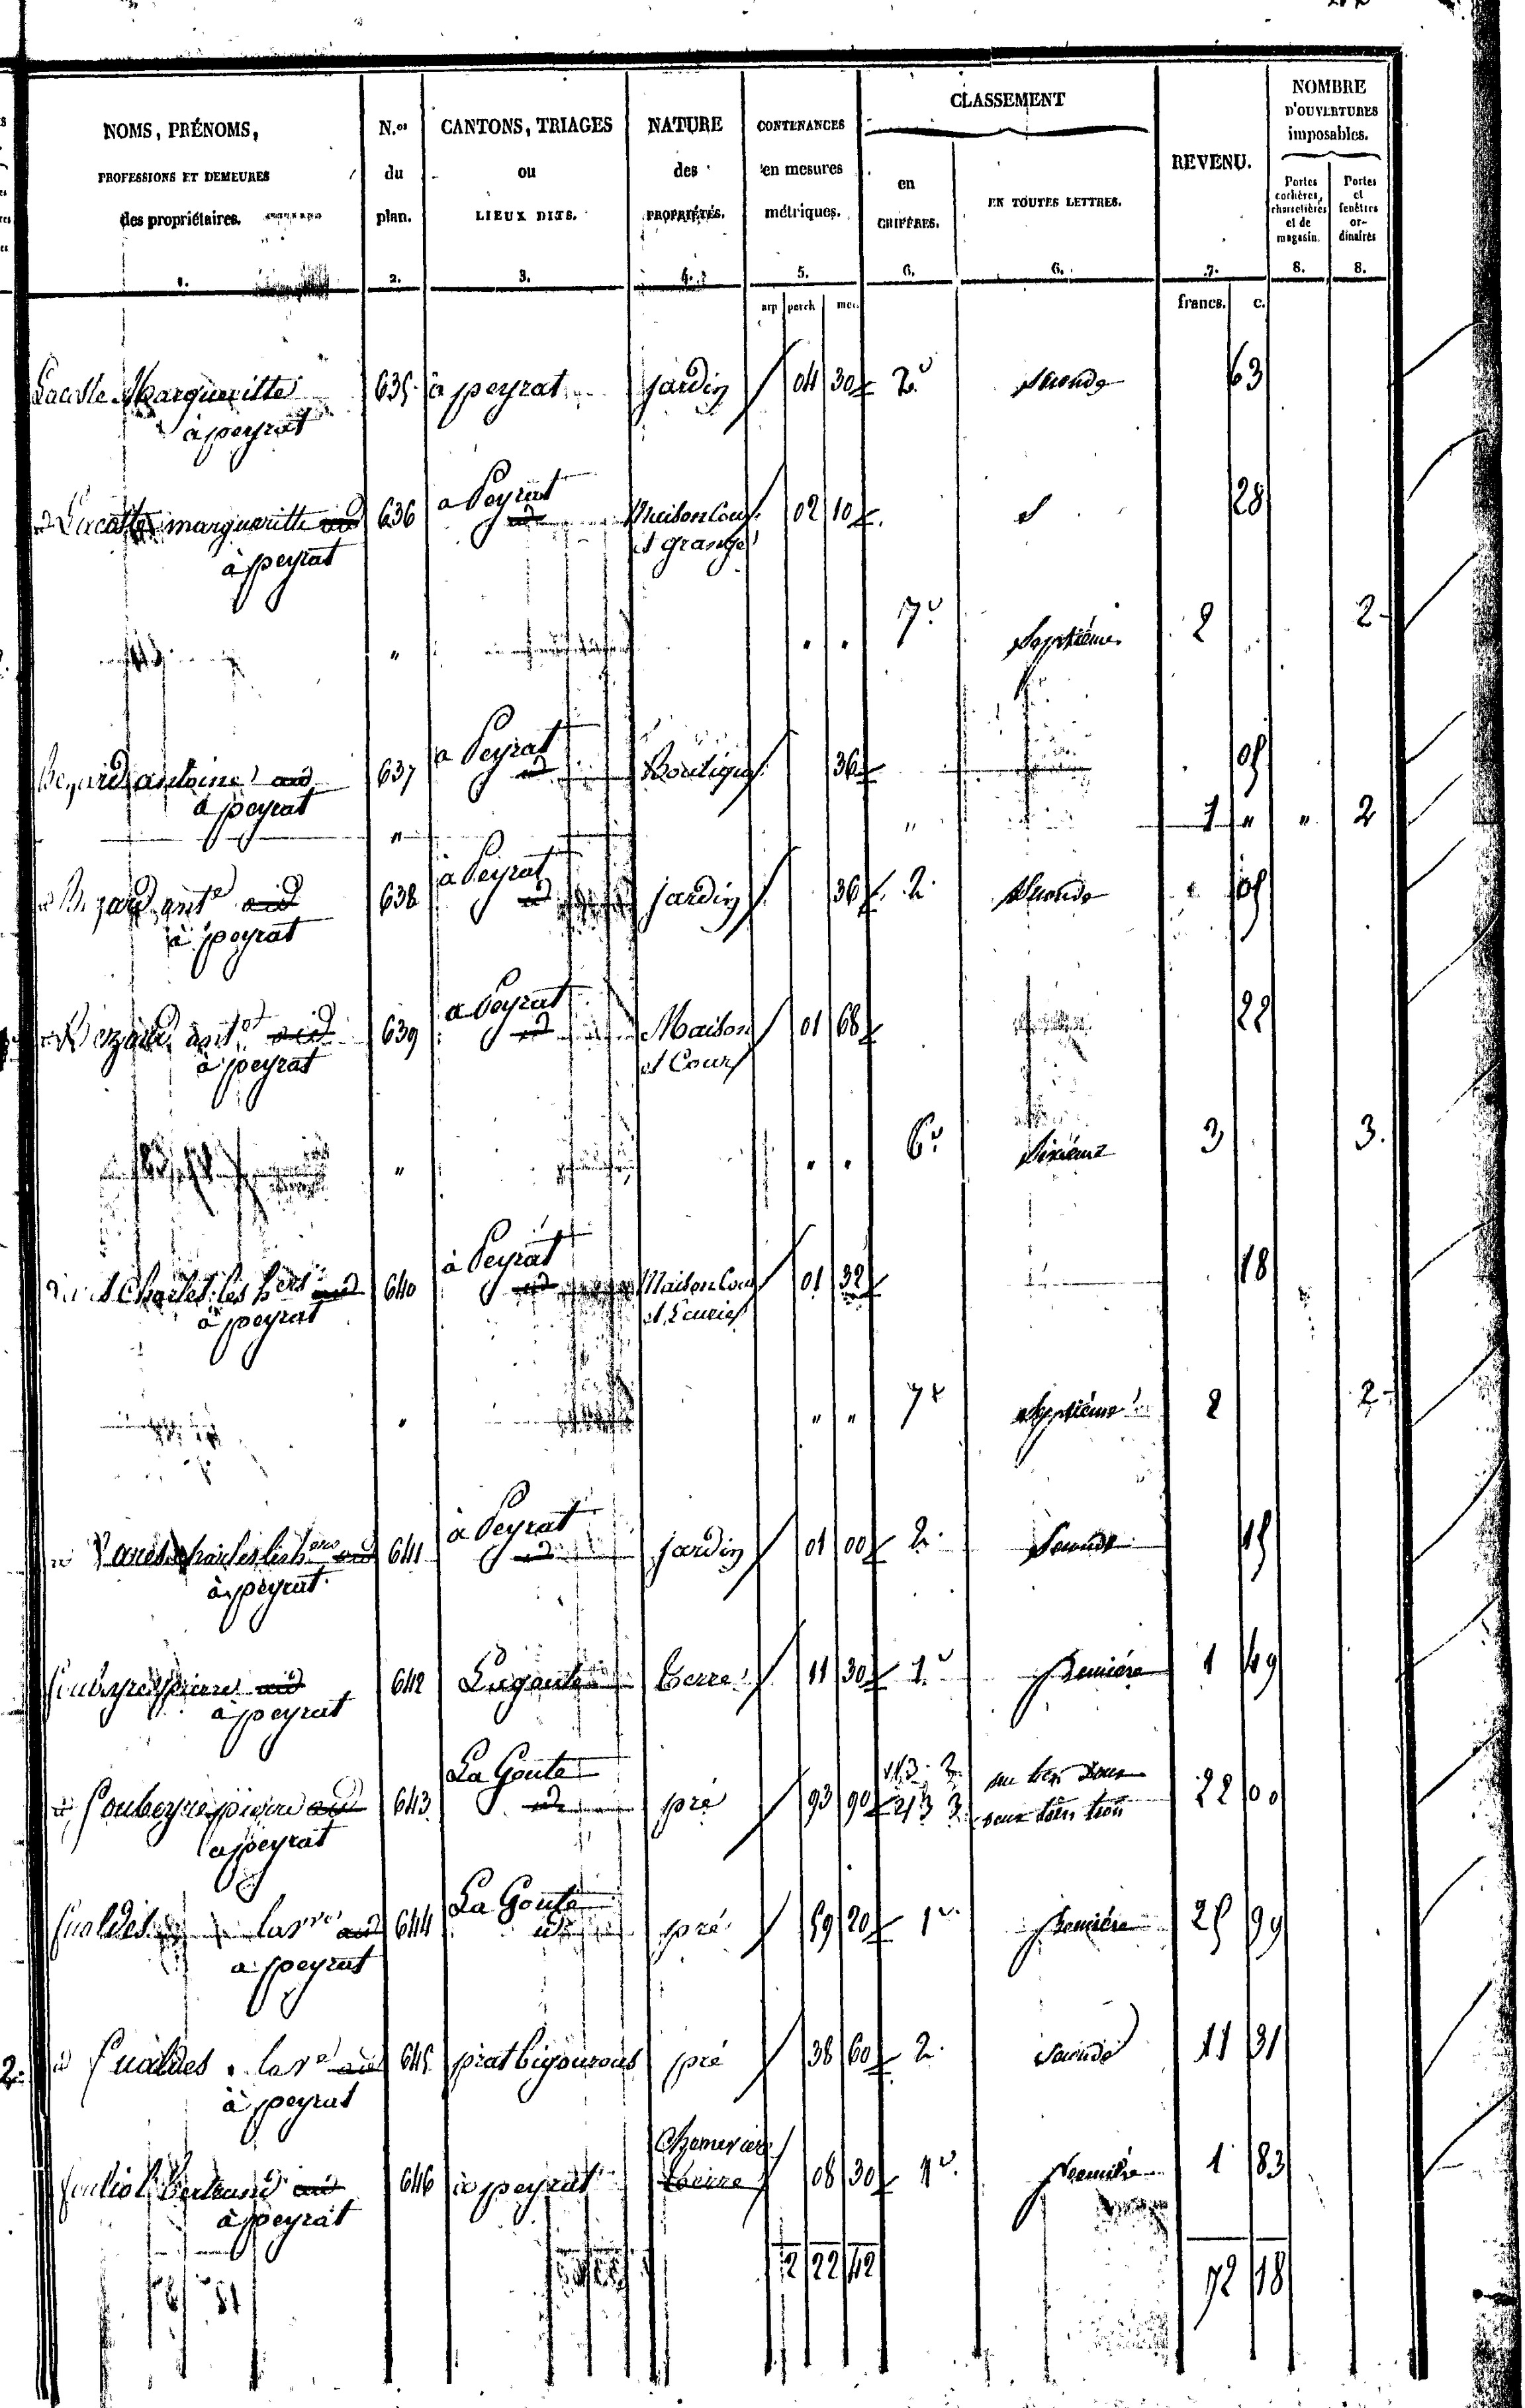 NOMS, PRÉNOMS,
PROFESSIONS ET DEMEURES
des propriétaires.
1.
N.os
du
plan.
2.
CANTONS, TRIAGES
ou
LIEUX DITS.
3.
NATURE
des
PROPRIÉTÉS.
4.
CONTENANCES
en mesures
métriques.
5.
CLASSEMENT
en
CHIFFRES.
6.
EN TOUTES LETTRES.
6.
REVENU.
7.
NOMBRE
D'OUVERTURES
imposables.
Portes
cochères,
charretières
et de
magasin.
8.
Portes
et
fenêtres
or-
dinaires
8.
arp perch met. francs. c.
Lacoste Margueritte 635 à peyrat jardin 04 30 2e seconde 63
à peyrat
id Lacoste margueritte id 636 a Peyrat id Maison Cour 02 10 28
à peyrat et grange
" 7e Septième 2 2
Bezard antoine id 637 a Peyrat id Boutique 36 05
à peyrat
" " 1 " " 2
id Bezard ante id 638 à Peyrat id jardin 36 2 seconde 05
à peyrat
id Bezard ant id 639 a Peyrat id Maison 01 68 22
à peyrat et Cour
" 6e Sixième 3 3
Charles les hers id 640 à Peyrat id Maison Cour 01 32 18
à peyrat et Ecurie
" " " 7e Septième 2 2
Charles les hers id 641 à Peyrat id jardin 01 00 2 Seconde 15
à peyrat
Soubeyre pierre id 642 Lagoute terre 11 30 1e première 1 49
à peyrat
id Soubeyre pierre id 643 La Goute id pré 93 90 1/3 2 un tiers deux 22 00
2/3 3 deux tiers trois
a peyrat
Fualdes la ve id 644 La Goute id pré 59 20 1e première 25 99
a peyrat
id Fualdes la ve id 645 prat bigourous pré 38 60 2 seconde 11 31
à peyrat
Bertrand id 646 à peyrat Chenevière terre 08 30 1e première 1 83
à peyrat
2 22 42 72 18